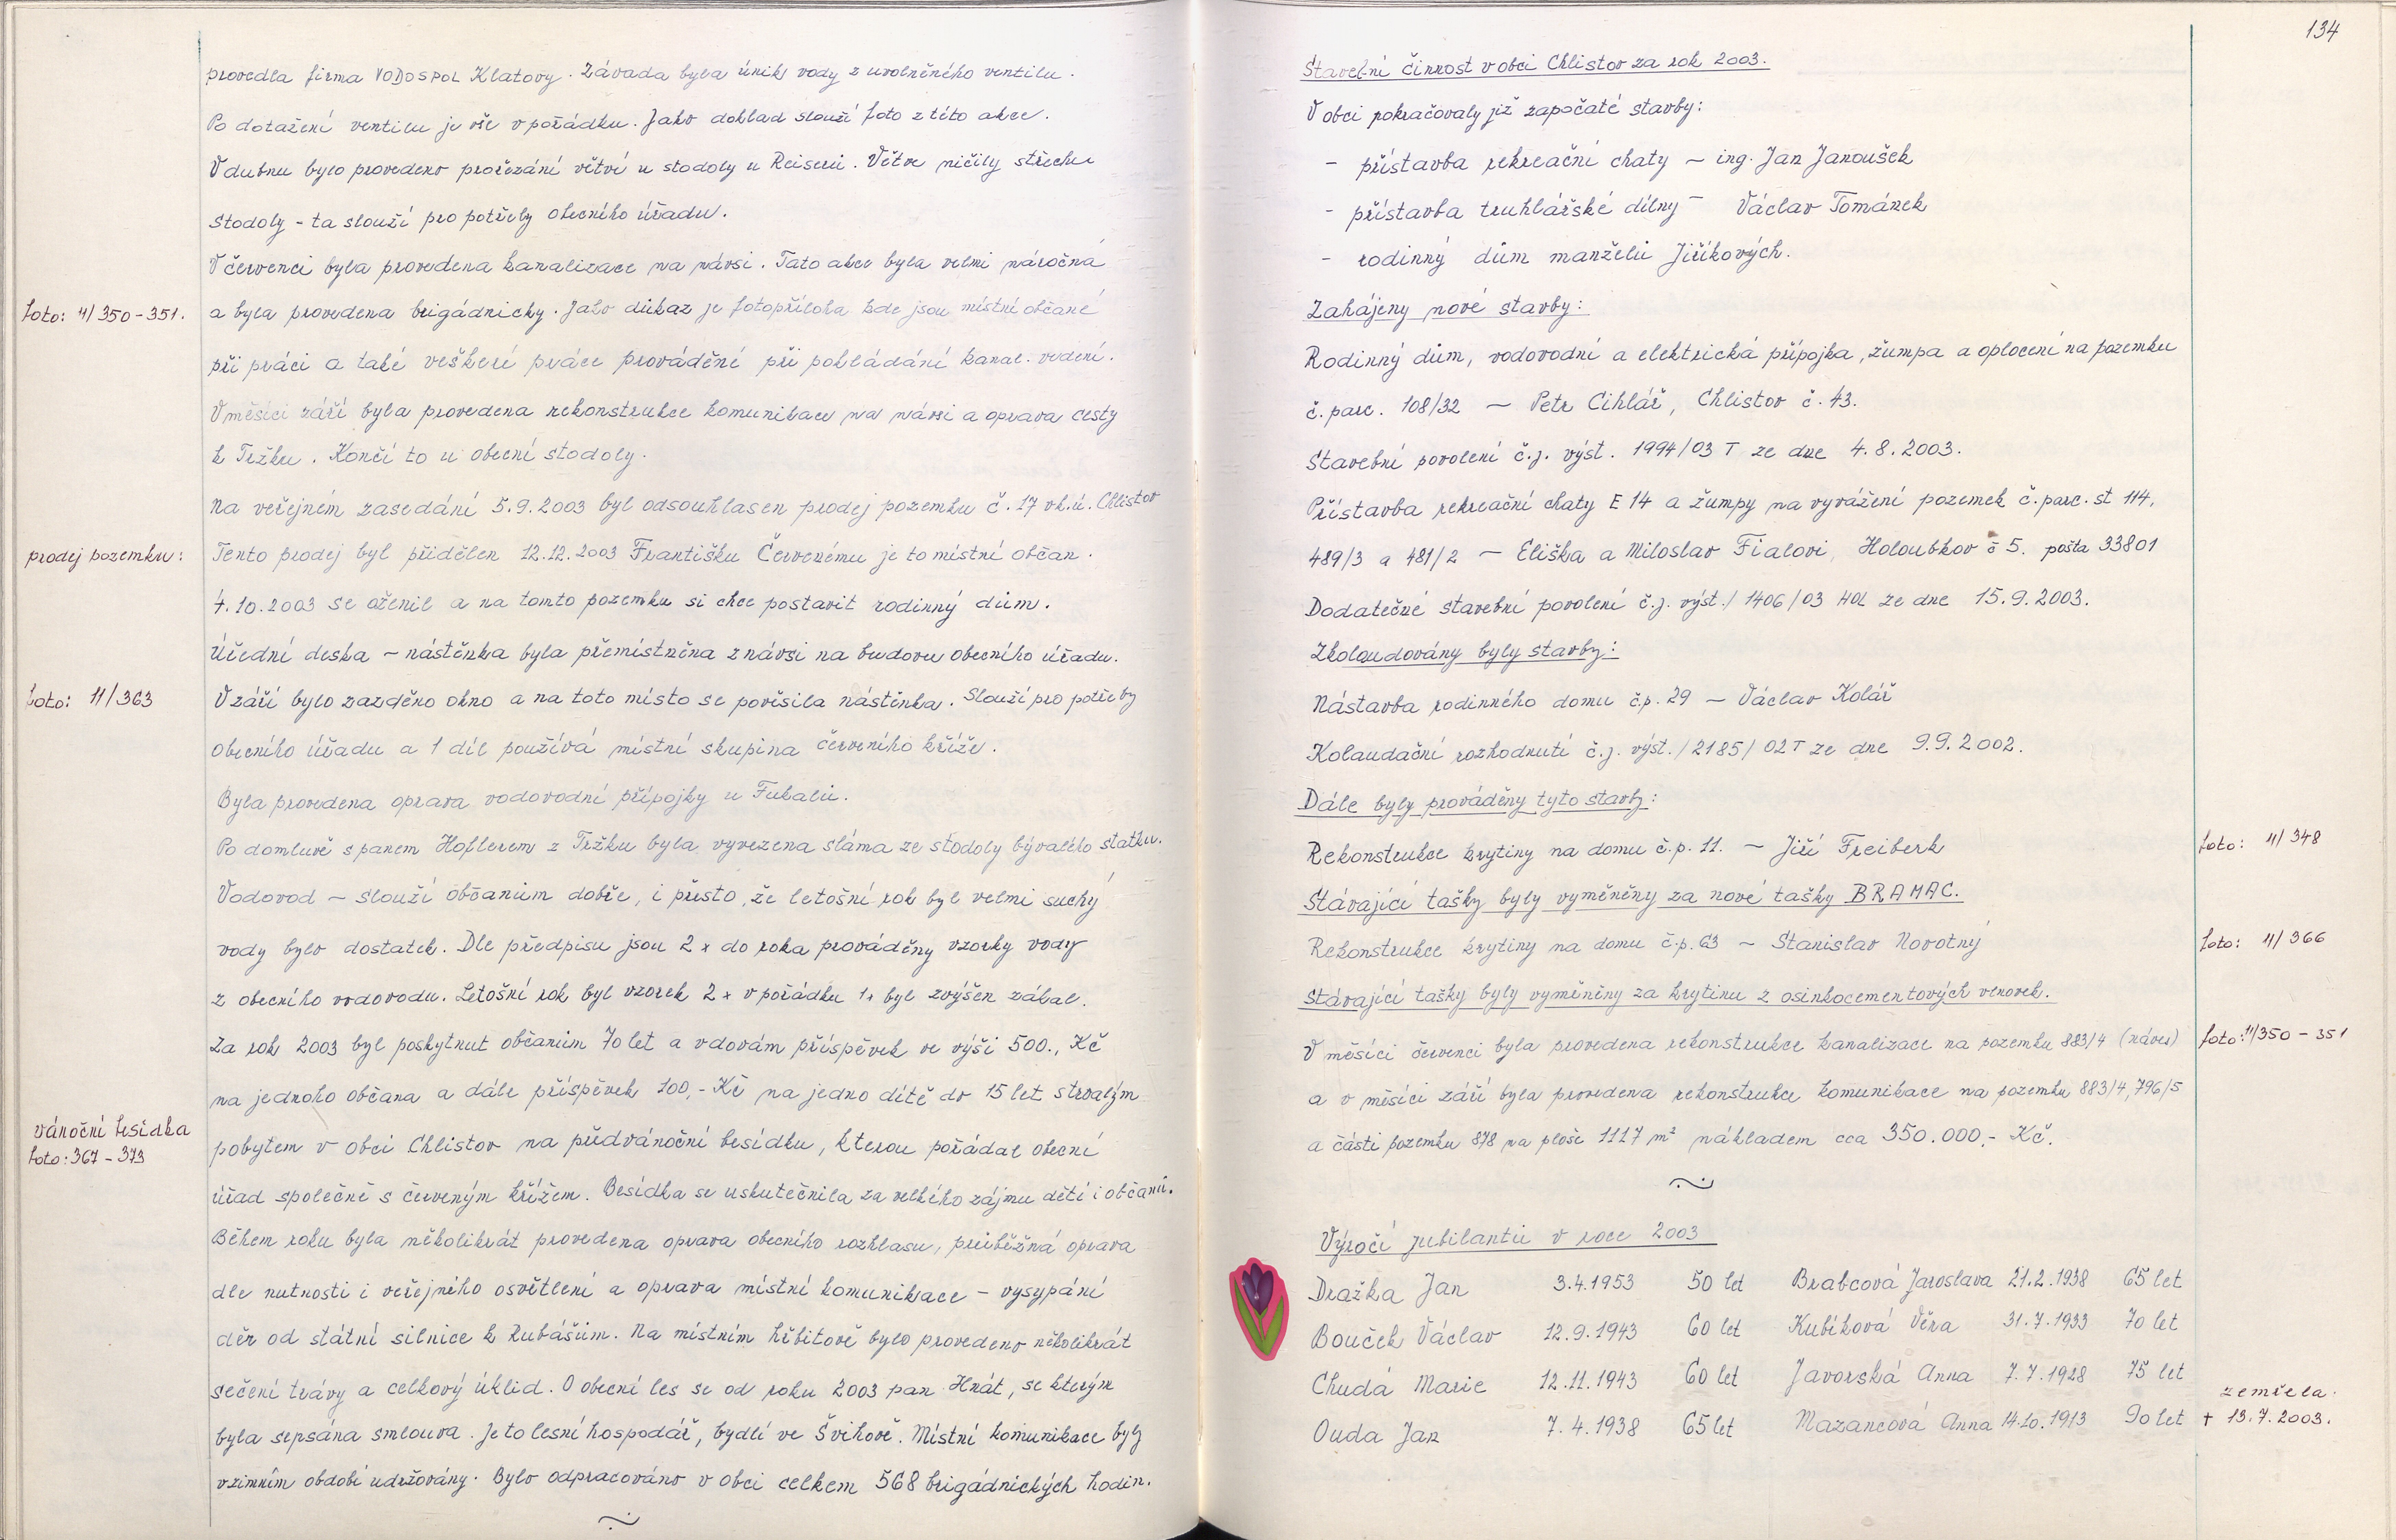 provedla firma VODOSPOL Klatovy. Závada byla únik vody z uvolněného ventilu.
Po dotažení ventilu je vše v pořádku. Jako doklad slouží foto z této akce.
V dubnu bylo provedeno prořezání větví u stodoly u Reiserů. Větve ničily střechu
stodoly - ta slouží pro potřeby obecního úřadu.
V červenci byla provedena kanalizace na návsi. Tato akce byla velmi náročná
foto: 11/350-351.
a byla provedena brigádnicky. Jako důkaz je fotopříloha kde jsou místní občané
při práci a také veškeré práce prováděné při pokládání kanal. vedení.
V měsíci září byla provedena rekonstrukce komunikace na návsi a oprava cesty
k Tržku. Končí to u obecní stodoly.
Na veřejném zasedání 5.9.2003 byl odsouhlasen prodej pozemku č. 17 v k.ú. Chlistov
prodej pozemku:
Tento prodej byl přidělen 12.12.2003 Františku Červenému je to místní občan.
4.10.2003 se oženil a na tomto pozemku si chce postavit rodinný dům.
Úřední deska - nástěnka byla přemístněna z návsi na budovu obecního úřadu.
foto: 11/363
V září bylo zazděno okno a na toto místo se pověsila nástěnka. Slouží pro potřeby
obecního úřadu a 1 díl používá místní skupina červeného kříže.
Byla provedena oprava vodovodní přípojky u Fukalů.
Po domluvě s panem Hoflerem z Tržku byla vyvezena sláma ze stodoly bývalého statku.
Vodovod - slouží občanům dobře, i přesto, že letošní rok byl velmi suchý
vody bylo dostatek. Dle předpisu jsou 2x do roka prováděny vzorky vody
z obecního vodovodu. Letošní rok byl vzorek 2x v pořádku 1x byl zvýšen zákal.
Za rok 2003 byl poskytnut občanům 70 let a vdovám příspěvek ve výši 500., Kč
na jednoho občana a dále příspěvek 100,- Kč na jedno dítě do 15 let s trvalým
vánoční besídka
foto: 367-373
pobytem v obci Chlistov na předvánoční besídku, kterou pořádal obecní
úřad společně s červeným křížem. Besídka se uskutečnila za velkého zájmu dětí i občanů.
Během roku byla několikrát provedena oprava obecního rozhlasu, průběžná oprava
dle nutnosti i veřejného osvětlení a oprava místní komunikace - vysypání
děr od státní silnice k Kubášům. Na místním hřbitově bylo provedeno několikrát
sečení trávy a celkový úklid. O obecní les se od roku 2003 pan Hnát, se kterým
byla sepsána smlouva. Je to lesní hospodář, bydlí ve Švihově. Místní komunikace byly
v zimním období udržovány. Bylo odpracováno v obci celkem 568 brigádnických hodin.
134
Stavební činnost v obci Chlistov za rok 2003.
V obci pokračovaly již započaté stavby:
- přístavba rekreační chaty - ing. Jan Janoušek
- přístavba truhlářské dílny - Václav Tománek
- rodinný dům manželů Jiříkových.
Zahájeny nové stavby:
Rodinný dům, vodovodní a elektrická přípojka, žumpa a oplocení na pozemku
č. parc. 108/32 - Petr Cihlář, Chlistov č. 43.
Stavební povolení č.j. výst. 1994/03 T ze dne 4.8.2003.
Přístavba rekreační chaty E 14 a žumpy na vyvážení pozemek č. parc. st 114,
489/3 a 481/2 - Eliška a Miloslav Fialovi, Holoubkov č 5. pošta 33801
Dodatečné stavební povolení č.j. výst./1406/03 HOL ze dne 15.9.2003.
Zkoloudovány byly stavby:
Nástavba rodinného domu č.p. 29 - Václav Kolář
Kolaudační rozhodnutí č.j. výst./2185/02T ze dne 9.9.2002.
Dále byly prováděny tyto stavby:
Rekonstrukce krytiny na domu č.p. 11. - Jiří Freiberk
foto: 11/348
Stávající tašky byly vyměněny za nové tašky BRAMAC.
Rekonstrukce krytiny na domu č.p. 63 - Stanislav Novotný
foto: 11/366
Stávající tašky byly vyměněny za krytinu z osinkocementových vlnovek.
V měsíci červenci byla provedena rekonstrukce kanalizace na pozemku 883/4 (náves)
foto: 11/350-351
a v měsíci září byla provedena rekonstrukce komunikace na pozemku 883/4, 796/5
a části pozemku 878 na ploše 1117 m² nákladem cca 350.000,- Kč.
Výročí jubilantů v roce 2003
Dražka Jan 3.4.1953 50 let Brabcová Jaroslava 21.2.1938 65 let
Bouček Václav 12.9.1943 60 let Kubíková Věra 31.7.1933 70 let
Chudá Marie 12.11.1943 60 let Javorská Anna 7.7.1928 75 let
Ouda Jan 7.4.1938 65 let Mazancová Anna 14.10.1913 90 let
zemřela
+ 13.7.2003.